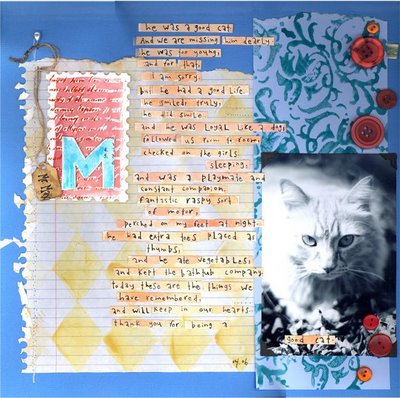 he was a good cat.
And we are missing him dearly.
he was too young,
and for that,
I am sorry.
but he had a good life.
he smiled; truly,
he did smile
and he was loyal like a dog,
followed us room to room,
checked on the girls
sleeping;
and was a playmate and
constant companion.
fantastic raspy sort
of motor,
perched on my feet at night.
he had extra toes placed as
thumbs,
and he ate vegetables,
and kept the bathtub company.
today these are the things we
have remembered.
and will keep in our hearts.
thank you for being a
good cat.
M